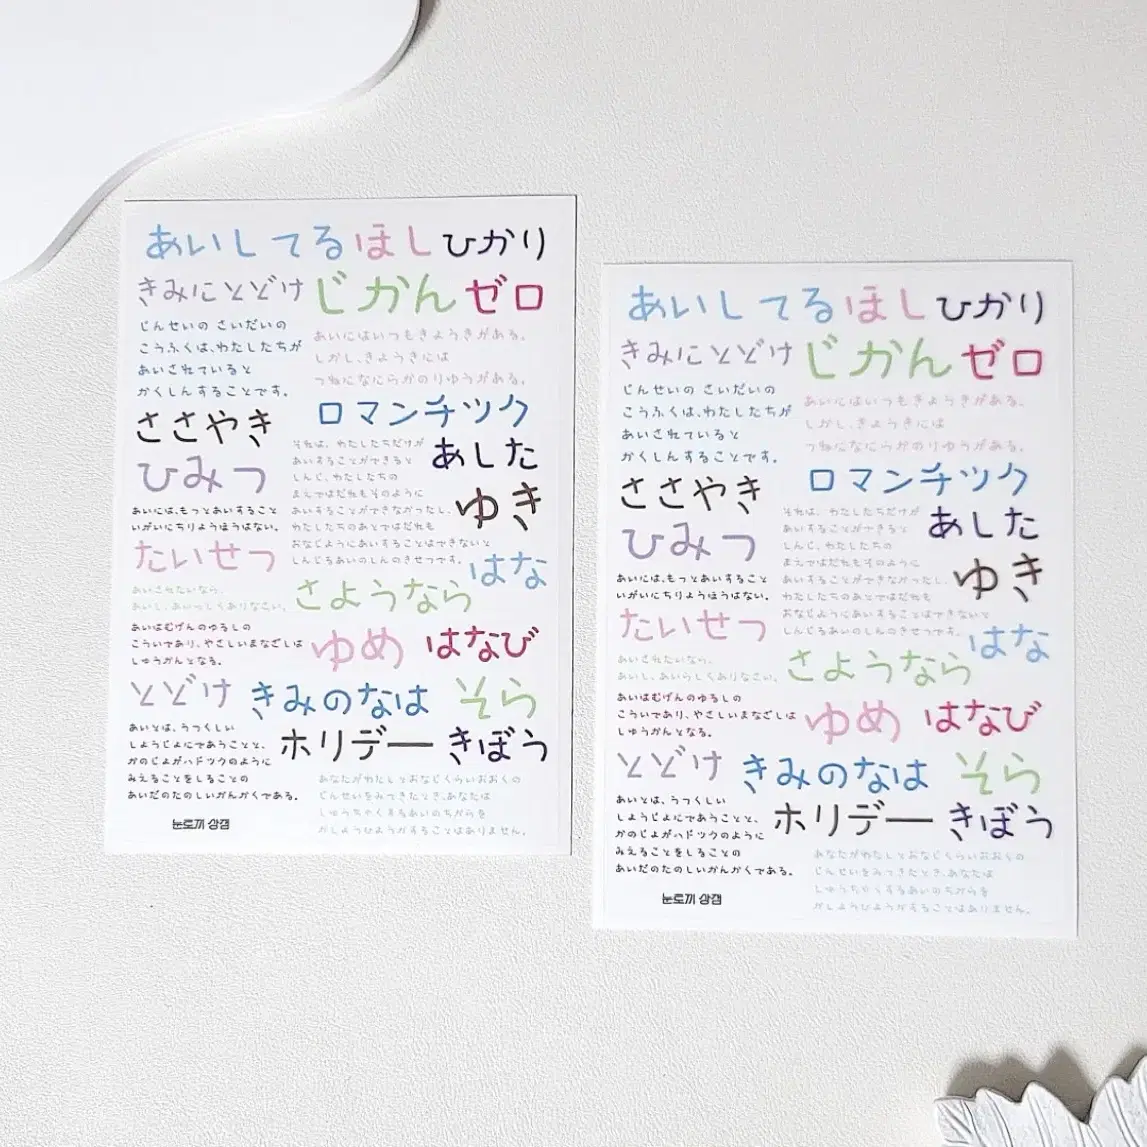 あいしてる ほし ひかり
きみにとどけ じかん ゼロ
じんせいの さいだいの
こうふくは、わたしたちが
あいされていると
かくしんすることです。
あいにはいつもきょうきがある。
しかし、きょうきには
つねになにらかのりゆうがある。
ささやき
ロマンチック
ひみつ
それは、わたしたちだけが
あいすることができると
しんじ、わたしたちの
まえではだれもそのように
あいすることができなかったし、
わたしたちのあとではだれも
おなじようにあいすることはできないと
しんじるあいのしんのきせつです。
あした
ゆき
あいには、もっとあいすること
いがいにちりょうほうはない。
たいせつ
はな
あいされたいなら、
あいし、あいらしくありなさい。
さようなら
あいはむげんのゆるしの
こういであり、やさしいまなざしは
しゅうかんとなる。
ゆめ はなび
とどけ きみのなは そら
あいとは、うつくしい
しょうじょにであうことと、
かのじょがハドックのように
みえることをしることの
あいだのたのしいかんかくである。
ホリデー きぼう
あなたがわたしとおなじくらいおおくの
じんせいをみてきたとき、あなたは
しゅうちゃくするあいのちからを
かしょうひょうかすることはありません。
눈토끼 상점
あいしてる ほし ひかり
きみにとどけ じかん ゼロ
じんせいの さいだいの
こうふくは、わたしたちが
あいされていると
かくしんすることです。
あいにはいつもきょうきがある。
しかし、きょうきには
つねになにらかのりゆうがある。
ささやき
ロマンチック
ひみつ
それは、わたしたちだけが
あいすることができると
しんじ、わたしたちの
まえではだれもそのように
あいすることができなかったし、
わたしたちのあとではだれも
おなじようにあいすることはできないと
しんじるあいのしんのきせつです。
あした
ゆき
あいには、もっとあいすること
いがいにちりょうほうはない。
たいせつ
はな
あいされたいなら、
あいし、あいらしくありなさい。
さようなら
あいはむげんのゆるしの
こういであり、やさしいまなざしは
しゅうかんとなる。
ゆめ はなび
とどけ きみのなは そら
あいとは、うつくしい
しょうじょにであうことと、
かのじょがハドックのように
みえることをしることの
あいだのたのしいかんかくである。
ホリデー きぼう
あなたがわたしとおなじくらいおおくの
じんせいをみてきたとき、あなたは
しゅうちゃくするあいのちからを
かしょうひょうかすることはありません。
눈토끼 상점